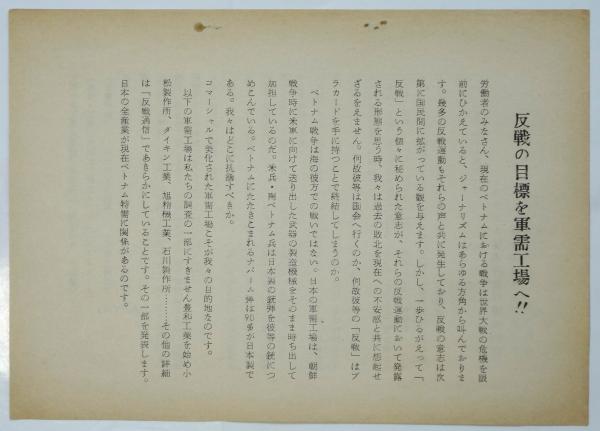 反戦の目標を軍需工場へ!!
労働者のみなさん、現在のベトナムにおける戦争は世界大戦の危機を眼
前にひかえていると、ジャーナリズムはあらゆる方角から叫んでおりま
す。幾多の反戦運動もそれらの声と共に発生しており、反戦の意志は次
第に国民間に拡がっている観を与えます。しかし、一歩ひるがえって「
反戦」という個々に秘められた意志が、それらの反戦運動において発露
される形態を思う時、我々は過去の敗北を現在への不安感と共に想起せ
ざるをえません。何故彼等は国会へ行くのか、何故彼等の「反戦」はプ
ラカードを手に持つことで終結してしまうのか。
ベトナム戦争は海の彼方での戦いではない。日本の軍需工場は、朝鮮
戦争時に米軍に向けて送り出した武器の製造機械をそのまま持ち出して
加担しているのだ。米兵・南ベトナム兵は日本製の銃弾を彼等の銃につ
めこんでいる。ベトナムにたたきこまれるナパーム弾は90％が日本製で
ある。我々はどこに抗議すべきか。
コマーシャルで美化された軍需工場こそが我々の目的地なのです。
以下の軍需工場は私たちの調査の一部にすぎません豊和工業を始め小
松製作所、ダイキン工業、旭精機工業、石川製作所………その他の詳細
は「反戦通信」であきらかにしていることです。その一部を発表します。
日本の全産業が現在ベトナム特需に関係があるのです。